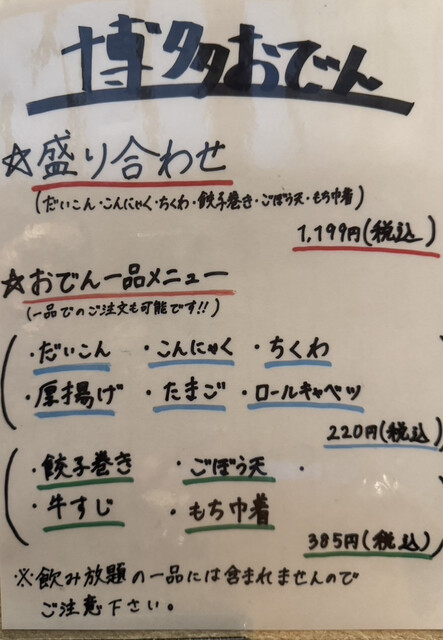 博多おでん
☆盛り合わせ
(だいこん・こんにゃく・ちくわ・餃子巻き・ごぼう天・もち巾着)
1,199円(税込)
☆おでん一品メニュー
(一品でのご注文も可能です!!)
・だいこん ・こんにゃく ・ちくわ
・厚揚げ ・たまご ・ロールキャベツ
220円(税込)
・餃子巻き ・ごぼう天 ・
・牛すじ ・もち巾着
385円(税込)
※飲み放題の一品には含まれませんので
ご注意下さい。